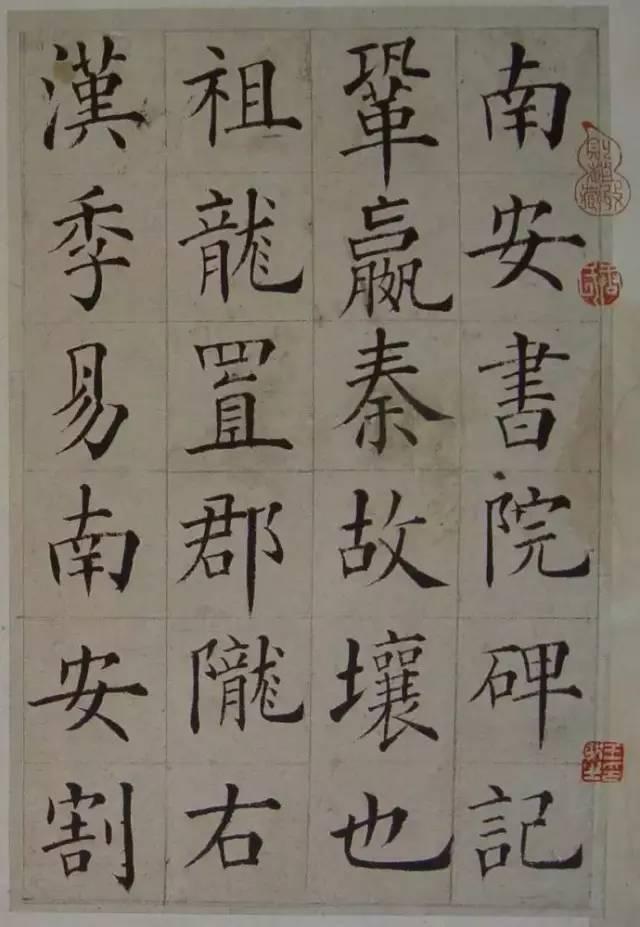 南安書院碑記
鞏嬴秦故壤也
祖龍置郡隴右
漢季易南安割